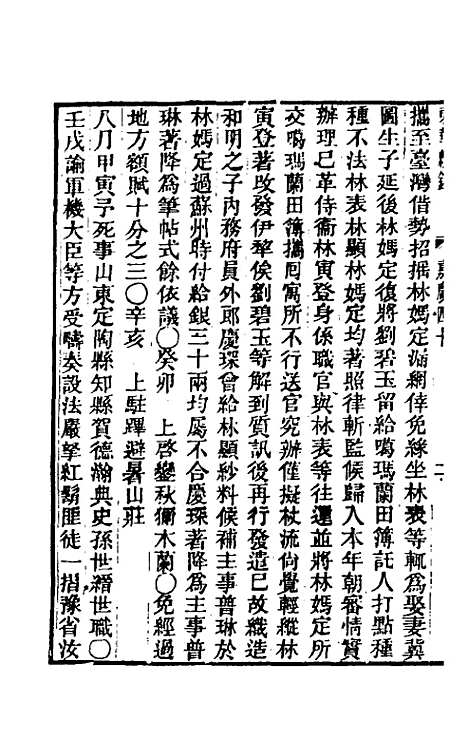 攜至臺灣借勢招搖林媽定漏網倖免緣坐林表等輒為娶妻冀
圖生子延後林媽定復將劉碧玉留給噶瑪蘭田簿託人打點種
種不法林表林顯林媽定均著照律斬監候歸入本年朝審情實
辦理已革侍衞林寅登身係職官與林表等往還並將林媽定所
交噶瑪蘭田簿攜囘寓所不行送官究辦僅擬杖流尙覺輕縱林
寅登著改發伊犂俟劉碧玉等解到質訊後再行發遣已故織造
和明之子內務府員外郎慶琛曾給林顯紗料候補主事普琳於
林媽定過蘇州時付給銀三十兩均屬不合慶琛著降為主事普
琳著降為筆帖式餘依議〇癸卯 上啓鑾秋獮木蘭〇免經過
地方額賦十分之三〇辛亥 上駐蹕避暑山莊
八月甲寅予死事山東定陶縣知縣賀德瀚典史孫世縉世職〇
壬戌諭軍機大臣等方受疇奏設法嚴拏紅鬍匪徒一摺豫省汝